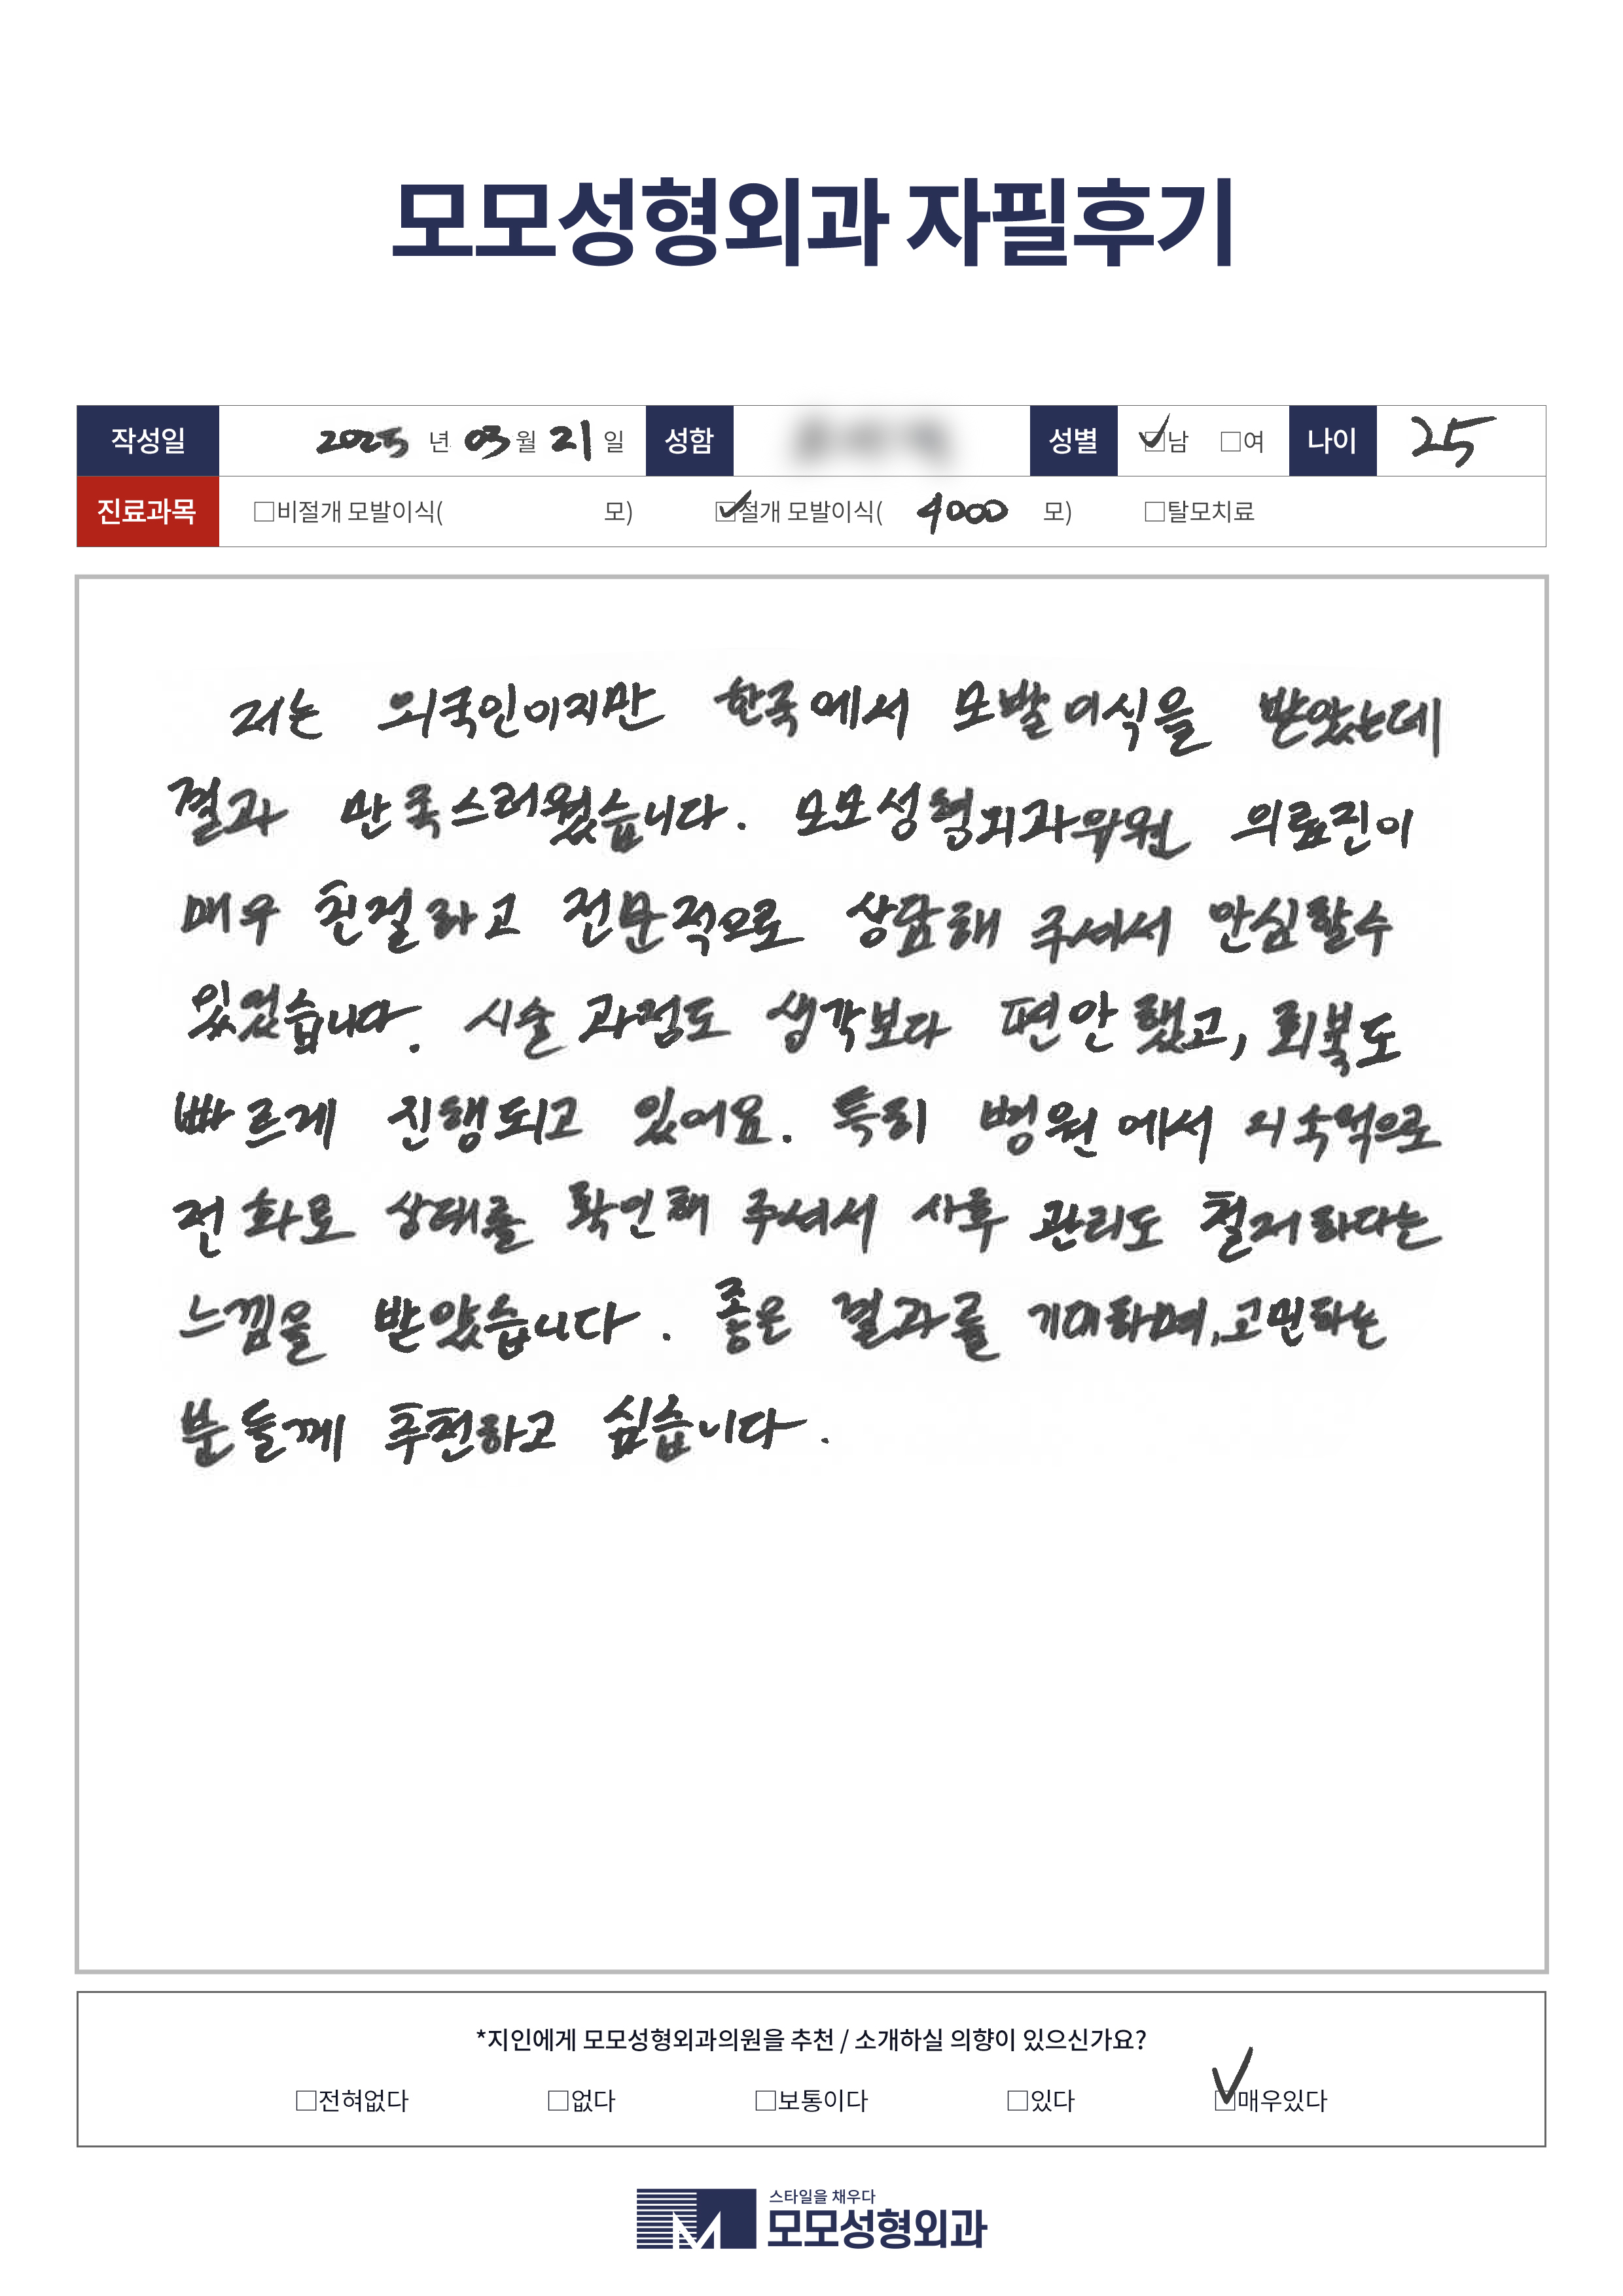 모모성형외과 자필후기
작성일 2025 년 03 월 21 일 성함 성별 ☑남 □여 나이 25
진료과목 □비절개 모발이식( 모) ☑절개 모발이식( 4000 모) □탈모치료
저는 외국인이지만 한국에서 모발이식을 받았는데
결과 만족스러웠습니다. 모모성형외과 의료진이
매우 친절하고 전문적으로 상담해 주셔서 안심할수
있었습니다. 시술 과정도 생각보다 편안했고, 회복도
빠르게 진행되고 있어요. 특히 병원에서 지속적으로
전화로 상태를 확인해 주셔서 사후 관리도 철저하다는
느낌을 받았습니다. 좋은 결과를 기대하며, 고민하는
분들께 추천하고 싶습니다.
*지인에게 모모성형외과의원을 추천 / 소개하실 의향이 있으신가요?
□전혀없다 □없다 □보통이다 □있다 ☑매우있다
스타일을 채우다
모모성형외과